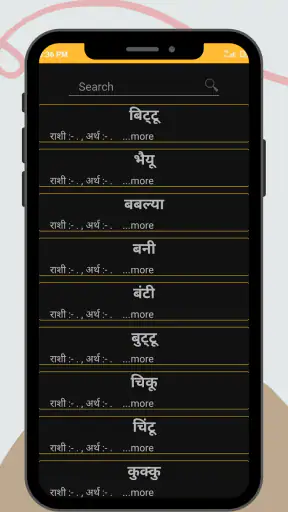 :36 PM
Search
बिट्टू
राशी :- . , अर्थ :- . ...more
भैयू
राशी :- . , अर्थ :- . ...more
बबल्या
राशी :- . , अर्थ :- . ...more
बनी
राशी :- . , अर्थ :- . ...more
बंटी
राशी :- . , अर्थ :- . ...more
बुट्टू
राशी :- . , अर्थ :- . ...more
चिकू
राशी :- . , अर्थ :- . ...more
चिंटू
राशी :- . , अर्थ :- . ...more
कुक्कु
राशी :- . , अर्थ :- . ...more